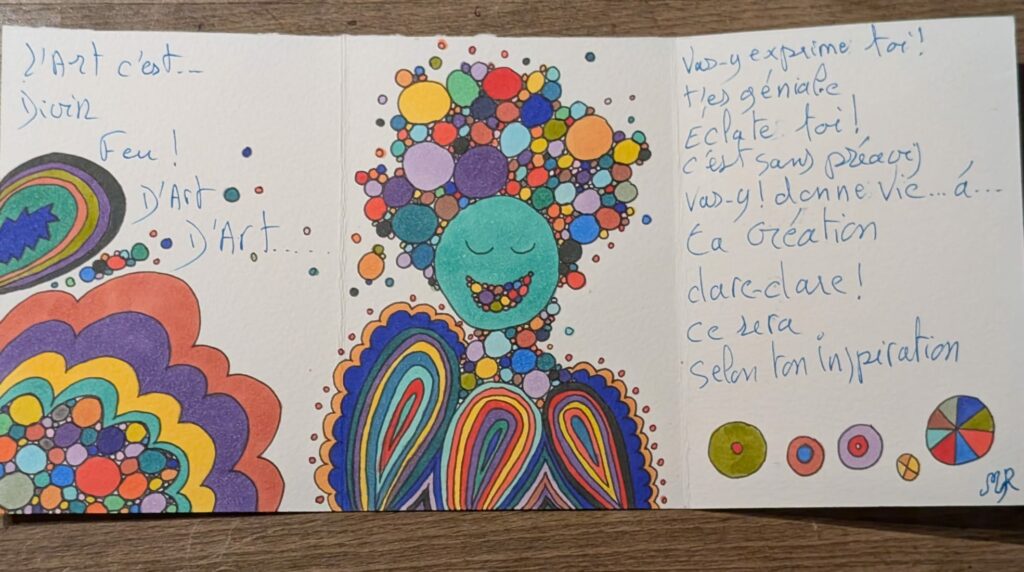 L'Art c'est...
Divin
Feu !
D'Art
D'Art......
Vas-y exprime toi !
t'es géniale
Eclate toi !
c'est sans préavis
vas-y ! donne vie... à...
ta Création
dare-dare !
ce sera
selon ton inspiration
MR